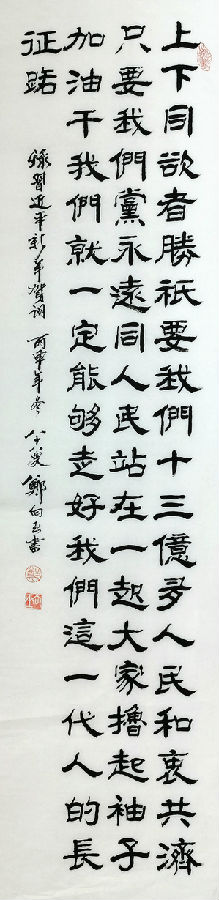 上下同欲者勝祇要我們十三億多人民和衷共濟
只要我們黨永遠同人民站在一起大家擼起袖子
加油干我們就一定能够走好我們這一代人的長
征路
錄習近平新年賀詞 丙申年冬 八十八叟 鄭向玉書